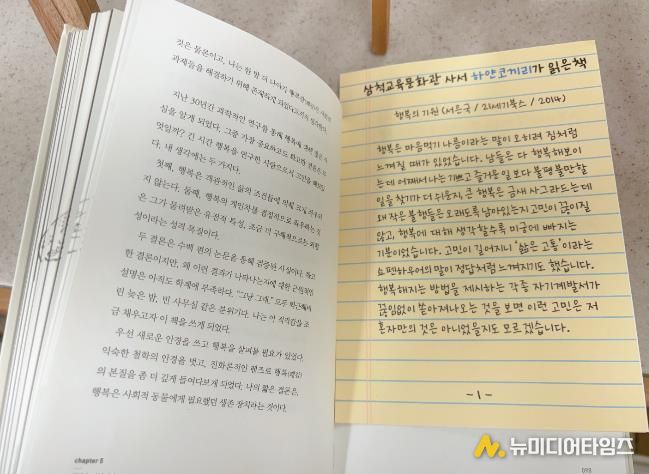 것은 물론이고, 나는 한 발 더 나아가
과제들을 해결하기 위해
지난 30년간 과학적인 연구를 통해 행복에 대한 많은 사
실을 알게 되었다. 그중 가장 중요하고도 확고한 결론은 무
엇일까? 긴 시간 행복을 연구한 사람으로서 고민을 해보았
다. 내 생각에는 두 가지다.
첫째, 행복은 객관적인 삶의 조건들에 의해 크게 좌우되
지 않는다. 둘째, 행복의 개인차를 결정적으로 좌우하는 것
은 그가 물려받은 유전적 특성, 조금 더 구체적으로는 외향
성이라는 성격 특질이다.
두 결론은 수백 편의 논문을 통해 검증된 사실이다. 확고
한 결론이지만, 왜 이런 결과가 나타나는지에 대한 근원적인
설명은 아직도 학계에 부족하다. "그냥 그래." 모두 퇴근해버
린 늦은 밤, 빈 사무실 같은 분위기다. 나는 이 적막감을 조
금 채우고자 이 책을 쓰게 되었다.
우선 새로운 안경을 쓰고 행복을 살펴볼 필요가 있었다.
익숙한 철학의 안경을 벗고, 진화론적인 렌즈로 행복(쾌감)
의 본질을 좀 더 깊게 들여다보게 되었다. 나의 짧은 결론은,
행복은 사회적 동물에게 필요했던 생존 장치라는 것이다.
chapter 5
삼척교육문화관 사서 하얀코끼리가 읽은책
행복의 기원 (서은국 / 21세기북스 / 2014)
행복은 마음먹기 나름이라는 말이 오히려 짐처럼
느껴질 때가 있었습니다. 남들은 다 행복해보이
는데 어째 나는 기쁘고 즐거운 일보다 불평불만할
일을 찾기가 더 쉬운지, 큰 행복은 금새 사그라드는데
왜 작은 불행들은 오래도록 남아있는지 고민이 끊이질
않고, 행복에 대해 생각할수록 미궁에 빠지는
기분이었습니다. 고민이 길어지니 '삶은 고통'이라는
쇼펜하우어의 말이 정답처럼 느껴지기도 했습니다.
행복해지는 방법을 제시하는 각종 자기계발서가
끊임없이 쏟아져나오는 것을 보면 이런 고민은 저
혼자만의 것은 아니었을지도 모르겠습니다.
-1-
093
뉴미디어타임즈